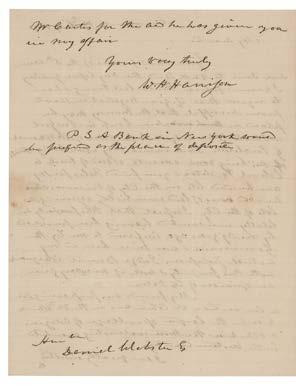 Mr Curtis for the aid he has given you
in my affair
Yours very truly
W. H. Harrison
P. S. A Bank in New York would
be preferred as the place of deposite
Honble
Daniel Webster